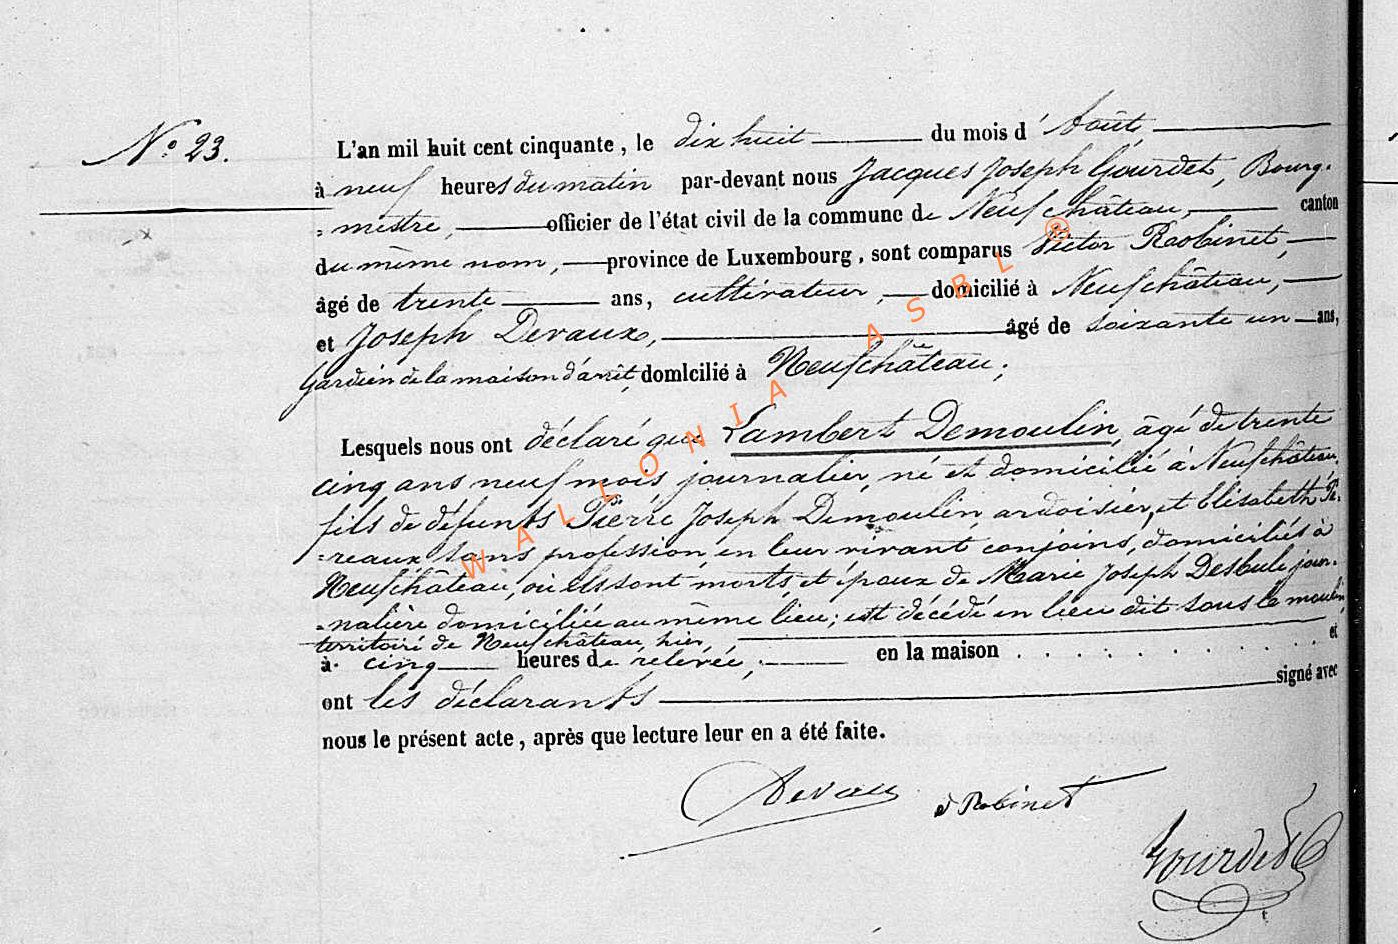 N.° 23.
L'an mil huit cent cinquante, le dix huit du mois d'Août
à neuf heures du matin par-devant nous Jacques Joseph Gourdet, Bourg-
-mestre, officier de l'état civil de la commune de Neufchâteau, canton
du même nom, province de Luxembourg, sont comparus Victor Raobinet,
âgé de trente ans, cultivateur, domicilié à Neufchâteau,
et Joseph Devaux, âgé de soixante un ans,
Gardien de la maison d'arrêt, domicilié à Neufchâteau;
Lesquels nous ont déclaré que Lambert Demoulin, âgé de trente
cinq ans neuf mois journalier, né et domicilié à Neufchâteau,
fils de défunts Pierre Joseph Demoulin, ardoisier, et Elisabeth Pé-
-reaux, sans profession, en leur vivant conjoins, domiciliés à
Neufchâteau, où ils sont morts, et époux de Marie Joseph Desbule jour-
-nalière domiciliée au même lieu; est décédé en lieu dit sous le moulin,
territoire de Neufchâteau, hier,
à cinq heures de relevée, en la maison . . . . . . . . . . et
ont les déclarants signé avec
nous le présent acte, après que lecture leur en a été faite.
Devau
Robinet
Gourdet
WALLONIA ASBL ®